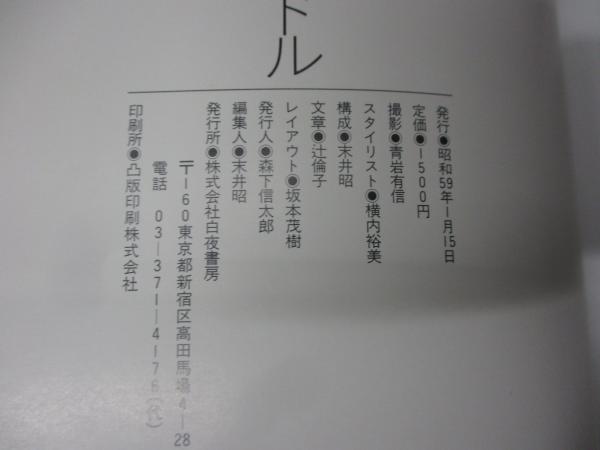 ドル
発行●昭和59年1月15日
定価●1500円
撮影●青岩有信
スタイリスト●横内裕美
構成●末井昭
文章●辻倫子
レイアウト●坂本茂樹
発行人●森下信太郎
編集人●末井昭
発行所●株式会社白夜書房
〒160東京都新宿区高田馬場4—28
電話 03—371—4176(代)
印刷所●凸版印刷株式会社